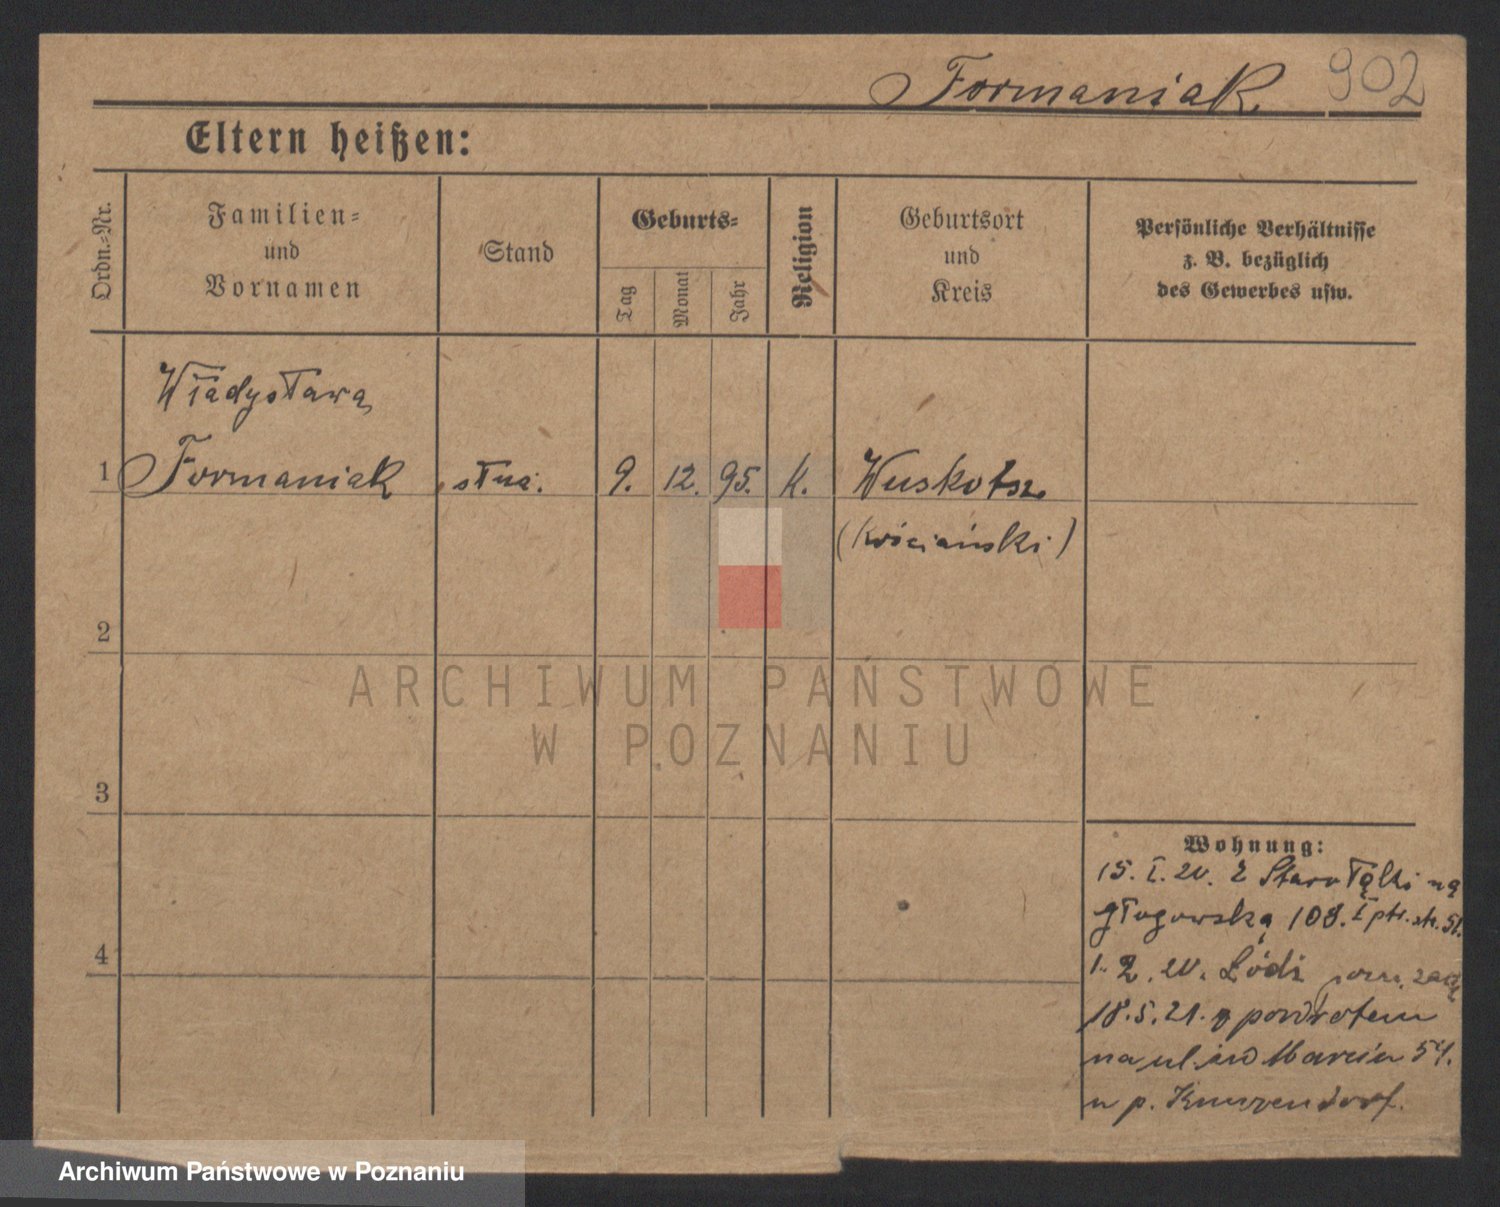 Formaniak 902
Eltern heißen:
Ordn.-Nr.
Familien-
und
Vornamen
Stand
Geburts-
Tag
Monat
Jahr
Religion
Geburtsort
und
Kreis
Persönliche Verhältnisse
z. B. bezüglich
des Gewerbes usw.
Władysława
1 Formaniak służ. 9. 12. 95. k. Wuskotsz.
(kościański)
2
3
4
ARCHIWUM PAŃSTWOWE
W POZNANIU
Wohnung:
15. I. 20. z Starołęki na
głogowską 108. I ptr. str. 51.
1. 2. 20. Łódź
18.5.21. z powrotem
na ul. św Marcin 54.
u p. Knurrendorf.
Archiwum Państwowe w Poznaniu